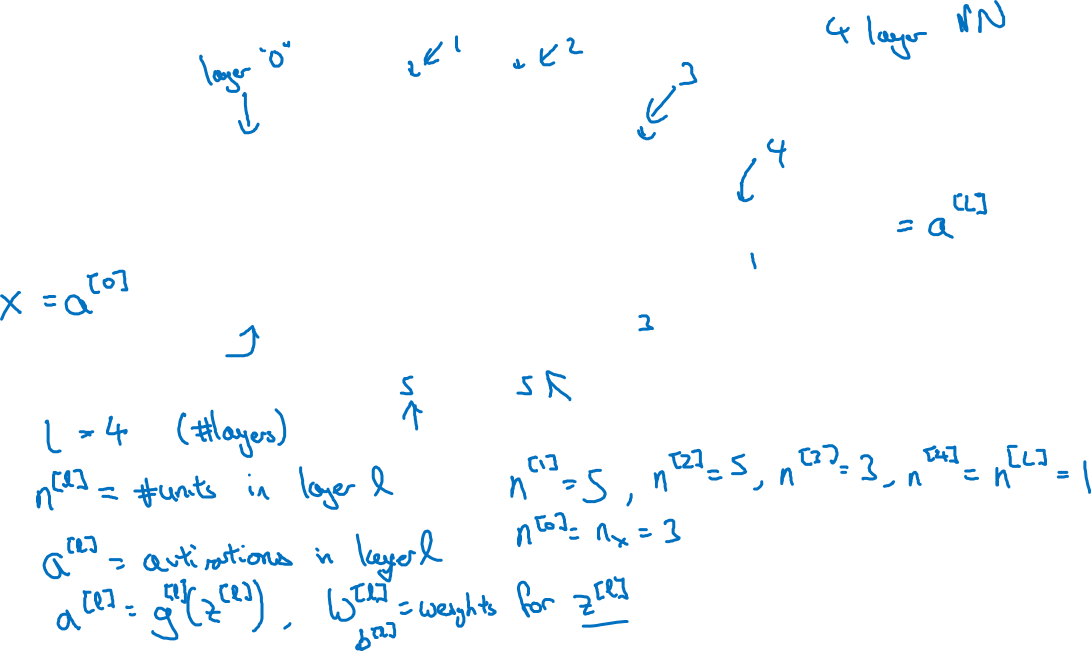 4 layer NN
layer "0"
1
2
3
4
= a^[L]
1
X = a^[0]
3
5
5
L = 4 (#layers)
n^[l] = #units in layer l
n^[1] = 5, n^[2] = 5, n^[3] = 3, n^[4] = n^[L] = 1
n^[0] = n_x = 3
a^[l] = activations in layer l
a^[l] = g^[l](z^[l]), W^[l] = weights for z^[l]
b^[l]